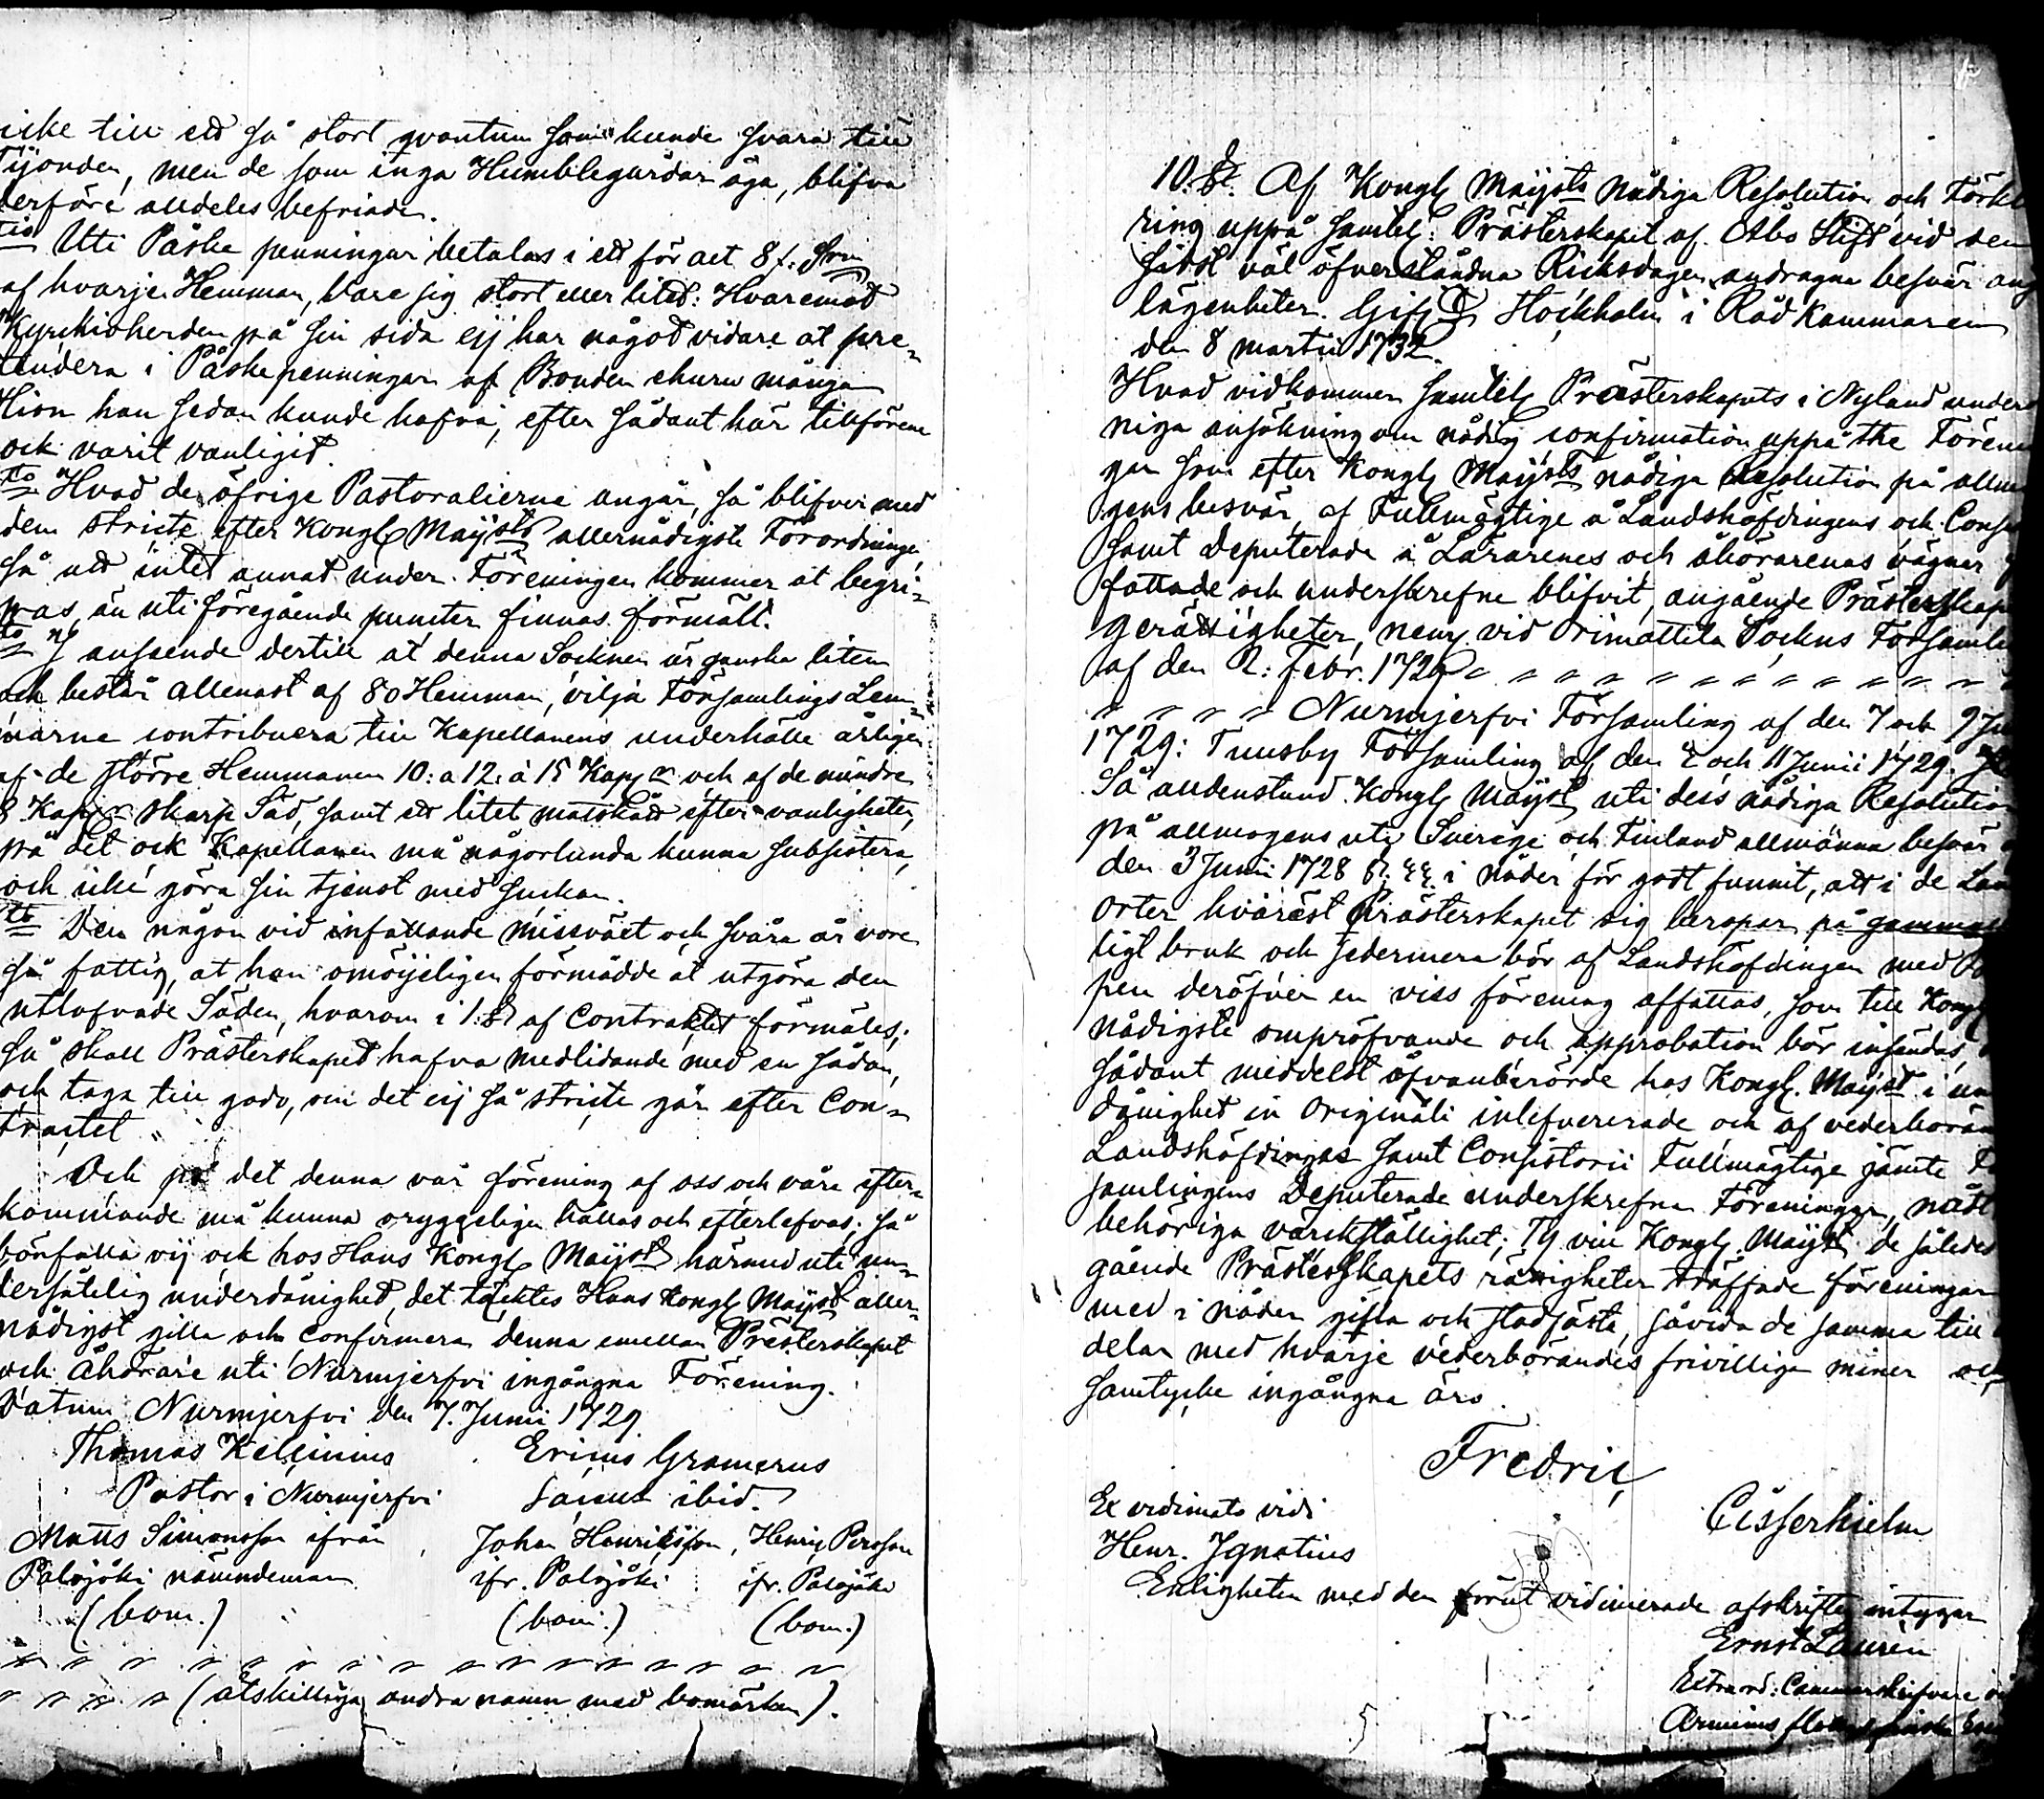 icke till ett så stort qvantum som kunde svara till
Tijonden, men de som inga Humblegårdar äga, blifva
derföre alldeles befriade.
tio Uti Påske penningar betalas i ett för alt 8 f. Srm
af hvarje Hemman, vare sig stort eller litet: Hvaremot
Kyrkioherden på sin sida eij har något vidare at pre-
tendera i Påskepenningar af Bonden ehuru många
Hion han sedan kunde hafva, efter sådant här tillförene
ock varit vanligit.
to Hvad de öfrige Pastoralierna angår, så blifver med
dem stricte efter Kongl Maijsts allernådigste Förordninge,
så att intet annat under Föreningen kommer at begri-
pas, än uti föregående puncter finnas förmält.
to J anseende dertill at denna Socknen är ganska liten
och består allenast af 80 Hemman, vilja Församlings Lem-
marne contribuera till Kapellanens underhålle årligen
af de större Hemmanen 10: a 12: à 15 Kapp r och af de mindre
8 Kapp r skarp Säd, samt ett litet matskått efter vanligheten,
på det ock Kapellanen må någorlunda kunna subsistera,
och icke göra sin tjenst med suckan.
to Den någon vid infallande missväxt och svåra år vore
så fattig, at han omöijeligen förmådde at utgöra den
utlofvade Säden, hvarom i 1: § af Contraktet förmäles;
så skall Prästerskapet hafva medlidande med en sådan,
och taga till godo, om det eij så stricte går efter Con-
tractet
Och på det denna vår förening af oss och våre efter-
kommande må kunna oryggeligen hållas och efterlefvas; så
bönfalla vij ock hos Hans Kongl Maijst härmed uti un-
dersåtelig underdånighet, det täcktes Hans Kongl Maijst aller-
nådigst gilla och Confirmera denna emellan Prästerskapet
och Åhörare uti Nurmjerfvi ingångna Förening.
Datum Nurmjerfvi den 7. Junii 1729
Thomas Kelcinius Ericus Gramerus
Pastor i Nurmjerfvi Sacus ibid.
Matts Simonsson ifrån Johan Henriksson, Henric Persson
Palojöki nämndeman ifr. Palojöki ifr. Palojöki
(bom.) (bom.) (bom.)
(åtskilliga andra namn med bomärken).
10. §. Af Kongl Maijsts Nådiga Resolution och Förkl
ring uppå samtel: Prästerskapet af Åbo Stift vid den
sidst väl öfverståndna Ricksdagen andragna besvär ang
lägenheter. Gifv Stockholm i Råd Kammaren
den 8 martii 1732.
Hvad vidkommer samtel Prästerskapets i Nyland underd
niga ansökning om nådig confirmation uppå the Fören
gar som efter Kongl Maijsts nådiga Resolution på allm
gens besvär, af Fullmägtige å Landshöfdingens och Consi
samt Deputerade å Lärarenes och åhörarenas vägnar
fattade och underskrefne blifvit, angående Prästerskap
gerättigheter, neml vid Orimattila Sockns Församli
af den 2: Febr. 1729
Nurmjerfvi Församling af den 7 och 9 Ju
1729: Tuusby Församling af den 2 och 11 Junii 1729.
Så alldenstund Kongl Maijst uti dess nådiga Resolution
på allmogens uti Sverige och Finland allmänna besvär
den 3 Junii 1728 § 44. i nåder för godt funnit, att i de Lan
Orter hvarest Prästerskapet sig beropar på gammal
ligt bruk och sedermera bör af Landshöfdingen med
pen deröfver en viss förening affattas, som till Kongl
nådigste ompröfvande och approbation bör insändas,
sådant meddelst ofvanberörde hos Kongl. Maijst i un
dånighet in Originali inlefvererade och af vederborän
Landshöfdingas samt Consistorii Fullmägtige jämte F
samlingens Deputerade underskrefna Föreningar, nådt
behöriga värckställighet; Ty vill Kongl. Maijst de således
gående Prästerskapets rättigheter träffade föreningar
med i nåder gilla och stadfästa, såvida de samma till
delar med hvarje vederbörandes frivilliga minne och
samtycke ingångna äro.
Fredric
Ex vidimato vidi
Cisserhielm
Henr. Ignatius
Enligheten med den förut vidimerade afskriften intygar
Ernst Laurèn
Extraord: Cammarskrifvare
Arméens flottas finska